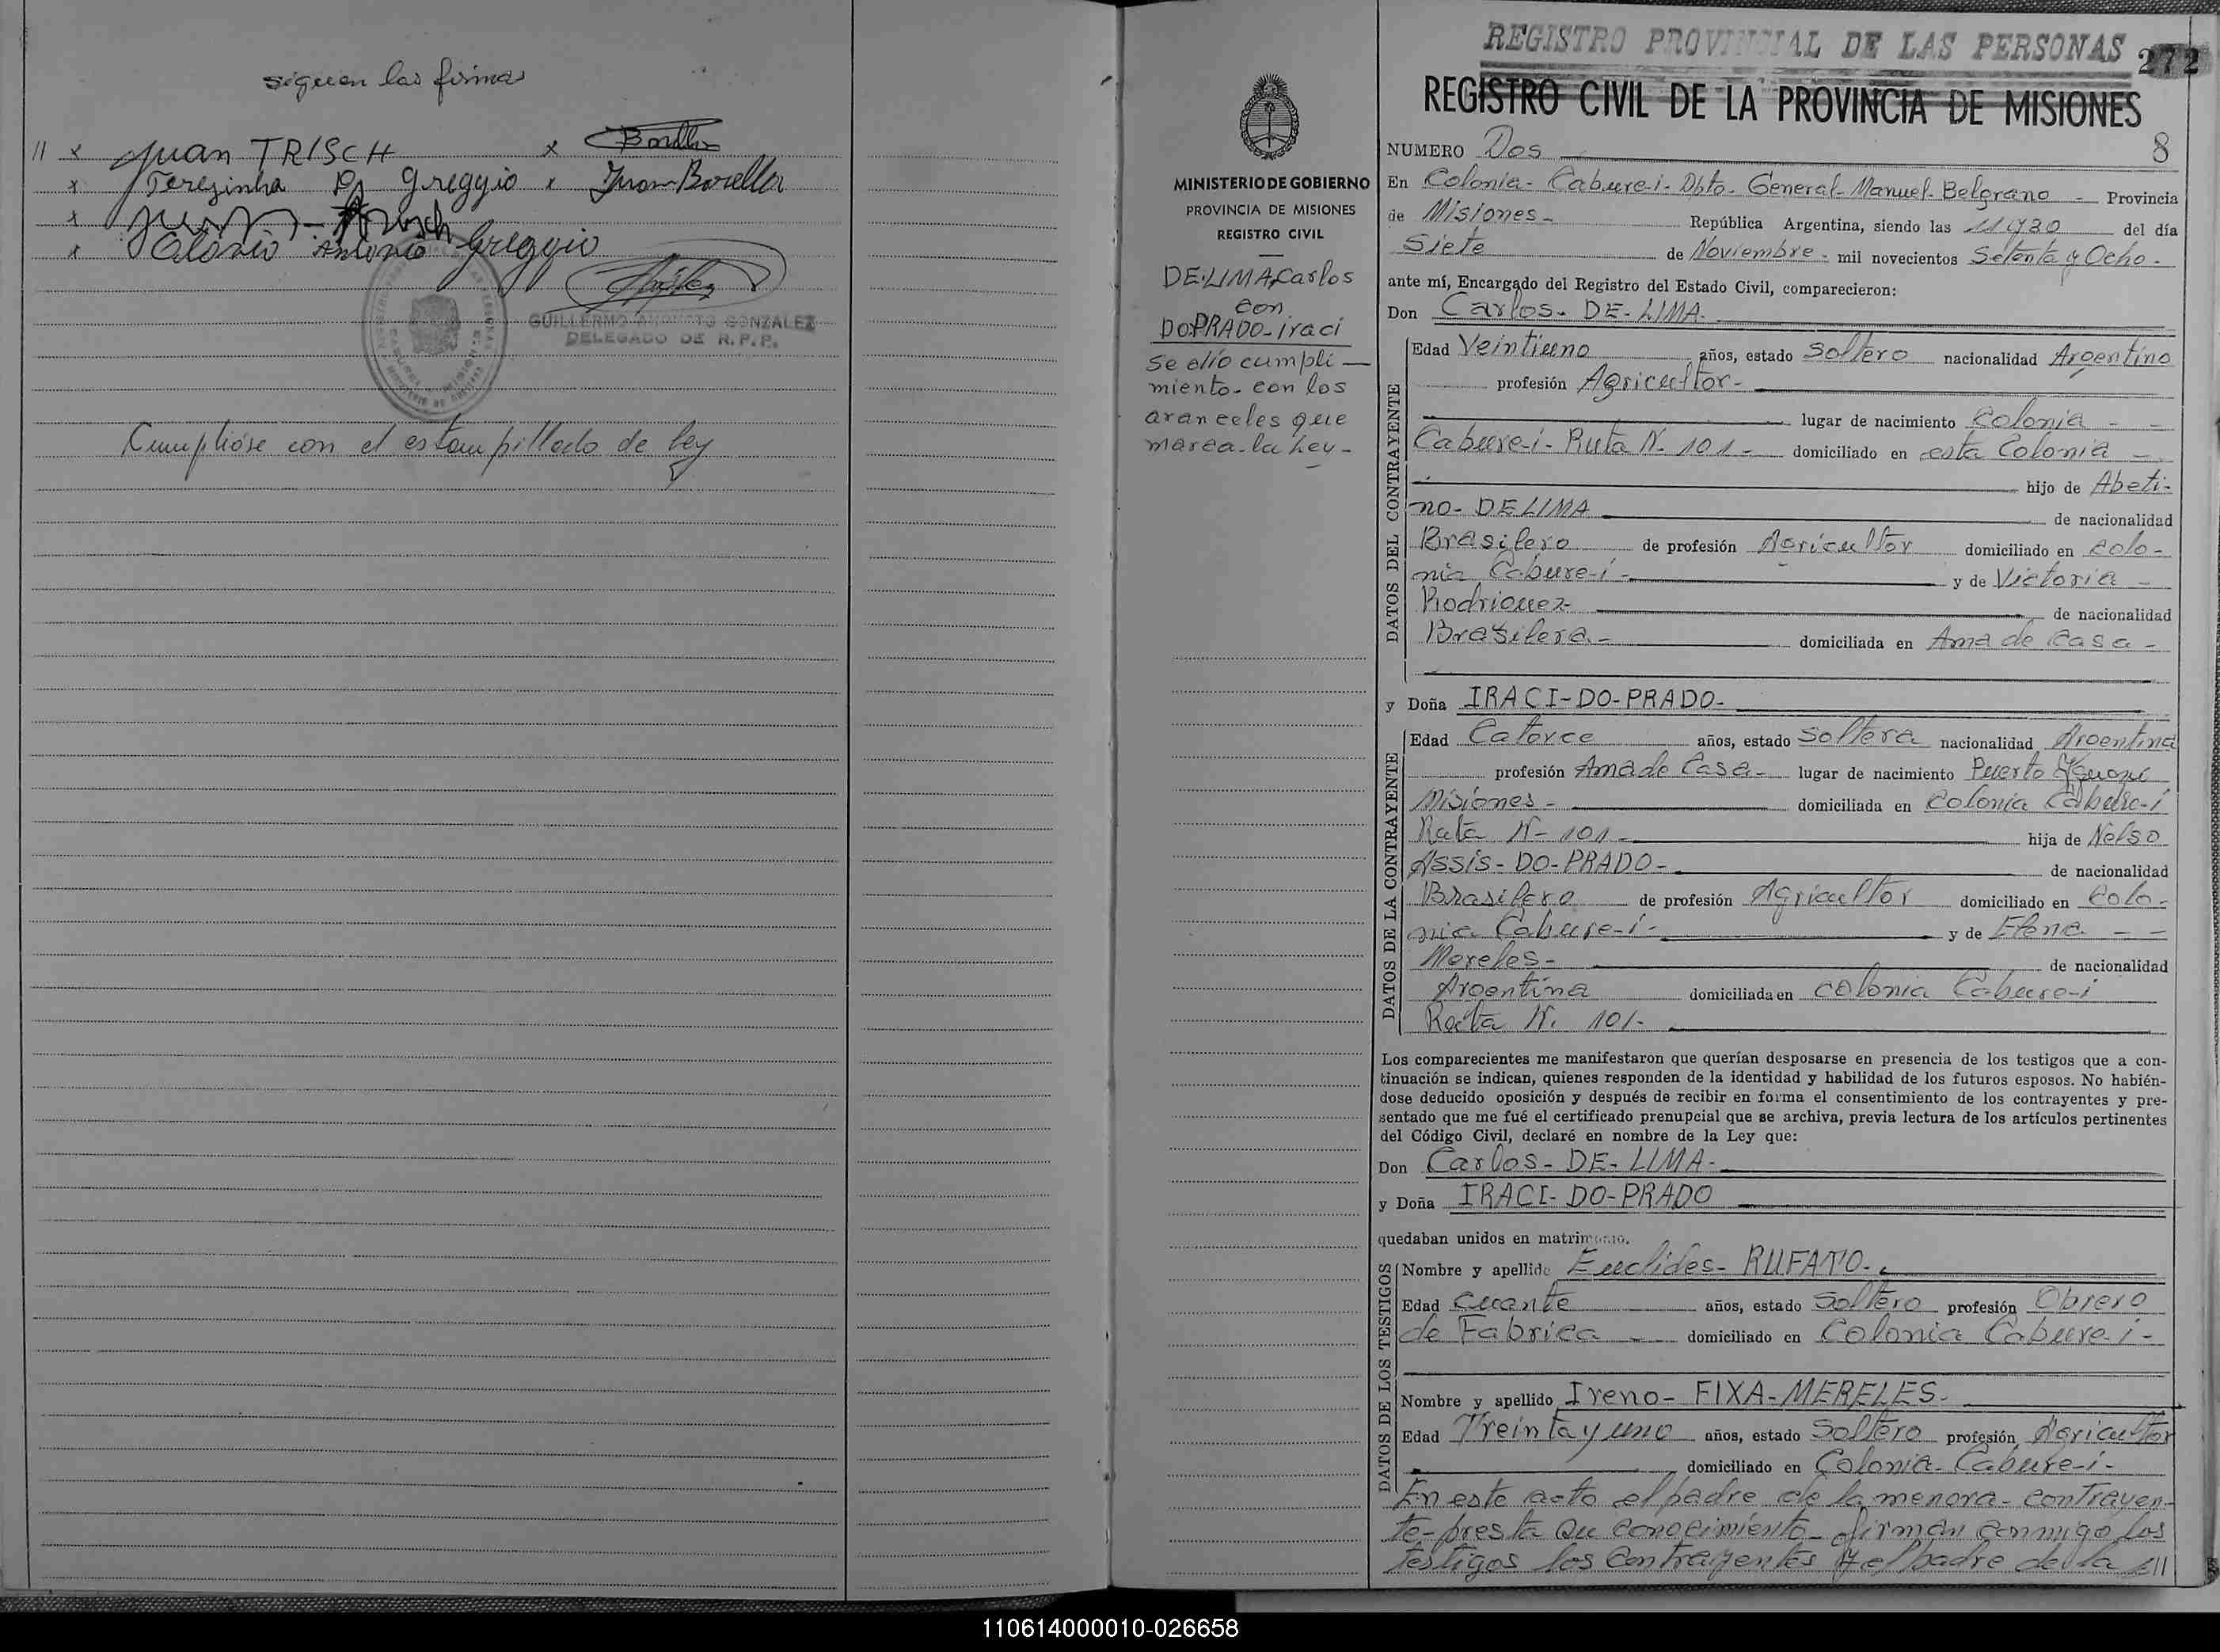 siguen las firmas
// x Juan TRISCH x Borella
x Terezinha Greggio x Juan Borella
x
x Antonio Greggio
GUILLERMO AUGUSTO GONZALEZ
DELEGADO DE R.P.P.
Cumplióse con el estampillado de ley
REGISTRO PROVINCIAL DE LAS PERSONAS 272
REGISTRO CIVIL DE LA PROVINCIA DE MISIONES
8
MINISTERIO DE GOBIERNO
PROVINCIA DE MISIONES
REGISTRO CIVIL
DE-LIMA Carlos
con
DO-PRADO-iraci
Se dío cumpli-
miento- con los
aranceles que
marca-la Ley-
NUMERO Dos
En Colonia- Cabure-i- Dpto- General- Manuel- Belgrano - Provincia
de Misiones- República Argentina, siendo las 11 y 30 del día
Siete de Noviembre- mil novecientos Setenta y Ocho-
ante mí, Encargado del Registro del Estado Civil, comparecieron:
Don Carlos- DE- LIMA-
DATOS DEL CONTRAYENTE
Edad Veintiuno años, estado Soltero nacionalidad Argentino
profesión Agricultor-
lugar de nacimiento Colonia - -
Cabure-i- Ruta N- 101- domiciliado en esta Colonia -
hijo de Abeti-
no- DE LIMA de nacionalidad
Brasilero de profesión Agricultor domiciliado en Colo-
nia Cabure-i- y de Victoria -
Rodriguez- de nacionalidad
Brasilera- domiciliada en Ama de Casa -
y Doña IRACI-DO-PRADO-
DATOS DE LA CONTRAYENTE
Edad Catorce años, estado Soltera nacionalidad Argentina
profesión Ama de Casa- lugar de nacimiento Puerto Yguazú
Misiones- domiciliada en Colonia Cabure-i
Ruta N- 101- hija de Nelso
Assis- DO-PRADO- de nacionalidad
Brasilero de profesión Agricultor domiciliado en Colo-
nia Cabure-i- y de Elena - -
Moreles- de nacionalidad
Argentina domiciliada en colonia Cabure-i
Ruta N. 101-
Los comparecientes me manifestaron que querían desposarse en presencia de los testigos que a con-
tinuación se indican, quienes responden de la identidad y habilidad de los futuros esposos. No habién-
dose deducido oposición y después de recibir en forma el consentimiento de los contrayentes y pre-
sentado que me fué el certificado prenupcial que se archiva, previa lectura de los artículos pertinentes
del Código Civil, declaré en nombre de la Ley que:
Don Carlos- DE- LIMA-
y Doña IRACI- DO-PRADO
quedaban unidos en matrimonio.
DATOS DE LOS TESTIGOS
Nombre y apellido Euclides- RUFATO-
Edad Cuante años, estado Soltero profesión Obrero
de Fabrica - domiciliado en Colonia Cabure-i-
Nombre y apellido Ireno- FIXA-MERELES-
Edad Treinta y uno años, estado Soltero profesión Agricultor
domiciliado en Colonia- Cabure-i-
En este acto el padre de la menora- contrayen-
te- presta su conocimiento- firman conmigo los
testigos los Contrayentes y el padre de la ///
110614000010-026658